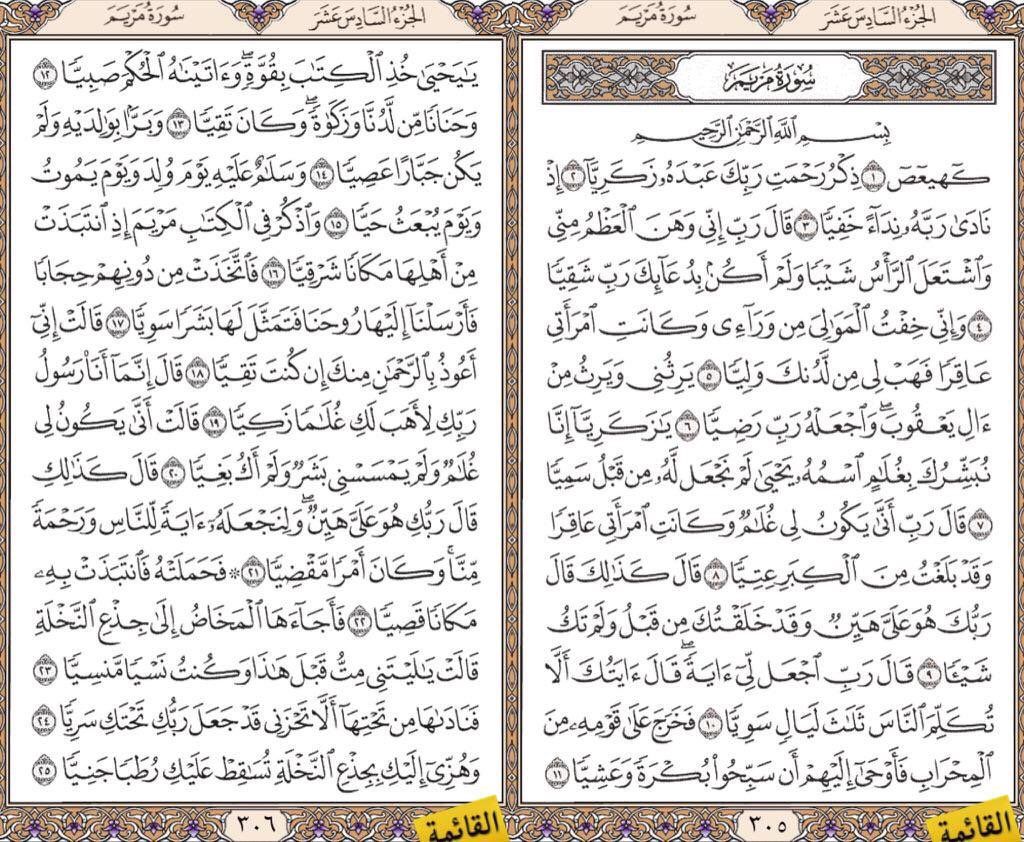 الجزء السادس عشر
سورة مريم
سُورَةُ مَرْيَمَ
بِسْمِ ٱللَّهِ ٱلرَّحْمَٰنِ ٱلرَّحِيمِ
كٓهيعٓصٓ ١ ذِكْرُ رَحْمَتِ رَبِّكَ عَبْدَهُۥ زَكَرِيَّآ ٢ إِذْ
نَادَىٰ رَبَّهُۥ نِدَآءً خَفِيًّا ٣ قَالَ رَبِّ إِنِّي وَهَنَ ٱلْعَظْمُ مِنِّي
وَٱشْتَعَلَ ٱلرَّأْسُ شَيْبًا وَلَمْ أَكُنۢ بِدُعَآئِكَ رَبِّ شَقِيًّا
٤ وَإِنِّي خِفْتُ ٱلْمَوَٰلِيَ مِن وَرَآءِي وَكَانَتِ ٱمْرَأَتِي
عَاقِرًا فَهَبْ لِي مِن لَّدُنكَ وَلِيًّا ٥ يَرِثُنِي وَيَرِثُ مِنْ
ءَالِ يَعْقُوبَۖ وَٱجْعَلْهُ رَبِّ رَضِيًّا ٦ يَٰزَكَرِيَّآ إِنَّا
نُبَشِّرُكَ بِغُلَٰمٍ ٱسْمُهُۥ يَحْيَىٰ لَمْ نَجْعَل لَّهُۥ مِن قَبْلُ سَمِيًّا
٧ قَالَ رَبِّ أَنَّىٰ يَكُونُ لِي غُلَٰمٌ وَكَانَتِ ٱمْرَأَتِي عَاقِرًا
وَقَدْ بَلَغْتُ مِنَ ٱلْكِبَرِ عِتِيًّا ٨ قَالَ كَذَٰلِكَ قَالَ
رَبُّكَ هُوَ عَلَيَّ هَيِّنٌ وَقَدْ خَلَقْتُكَ مِن قَبْلُ وَلَمْ تَكُ
شَيْـًٔا ٩ قَالَ رَبِّ ٱجْعَل لِّيٓ ءَايَةًۖ قَالَ ءَايَتُكَ أَلَّا
تُكَلِّمَ ٱلنَّاسَ ثَلَٰثَ لَيَالٍ سَوِيًّا ١٠ فَخَرَجَ عَلَىٰ قَوْمِهِۦ مِنَ
ٱلْمِحْرَابِ فَأَوْحَىٰٓ إِلَيْهِمْ أَن سَبِّحُوا۟ بُكْرَةً وَعَشِيًّا ١١
٣٠٥
القائمة
الجزء السادس عشر
سورة مريم
يَٰيَحْيَىٰ خُذِ ٱلْكِتَٰبَ بِقُوَّةٍۖ وَءَاتَيْنَٰهُ ٱلْحُكْمَ صَبِيًّا ١٢
وَحَنَانًا مِّن لَّدُنَّا وَزَكَوٰةًۖ وَكَانَ تَقِيًّا ١٣ وَبَرًّۢا بِوَٰلِدَيْهِ وَلَمْ
يَكُن جَبَّارًا عَصِيًّا ١٤ وَسَلَٰمٌ عَلَيْهِ يَوْمَ وُلِدَ وَيَوْمَ يَمُوتُ
وَيَوْمَ يُبْعَثُ حَيًّا ١٥ وَٱذْكُرْ فِي ٱلْكِتَٰبِ مَرْيَمَ إِذِ ٱنتَبَذَتْ
مِنْ أَهْلِهَا مَكَانًا شَرْقِيًّا ١٦ فَٱتَّخَذَتْ مِن دُونِهِمْ حِجَابًا
فَأَرْسَلْنَآ إِلَيْهَا رُوحَنَا فَتَمَثَّلَ لَهَا بَشَرًا سَوِيًّا ١٧ قَالَتْ إِنِّيٓ
أَعُوذُ بِٱلرَّحْمَٰنِ مِنكَ إِن كُنتَ تَقِيًّا ١٨ قَالَ إِنَّمَآ أَنَا۠ رَسُولُ
رَبِّكِ لِأَهَبَ لَكِ غُلَٰمًا زَكِيًّا ١٩ قَالَتْ أَنَّىٰ يَكُونُ لِي
غُلَٰمٌ وَلَمْ يَمْسَسْنِي بَشَرٌ وَلَمْ أَكُ بَغِيًّا ٢٠ قَالَ كَذَٰلِكِ
قَالَ رَبُّكِ هُوَ عَلَيَّ هَيِّنٌۖ وَلِنَجْعَلَهُۥٓ ءَايَةً لِّلنَّاسِ وَرَحْمَةً
مِّنَّاۚ وَكَانَ أَمْرًا مَّقْضِيًّا ٢١ ۞ فَحَمَلَتْهُ فَٱنتَبَذَتْ بِهِۦ
مَكَانًا قَصِيًّا ٢٢ فَأَجَآءَهَا ٱلْمَخَاضُ إِلَىٰ جِذْعِ ٱلنَّخْلَةِ
قَالَتْ يَٰلَيْتَنِي مِتُّ قَبْلَ هَٰذَا وَكُنتُ نَسْيًا مَّنسِيًّا ٢٣
فَنَادَىٰهَا مِن تَحْتِهَآ أَلَّا تَحْزَنِي قَدْ جَعَلَ رَبُّكِ تَحْتَكِ سَرِيًّا ٢٤
وَهُزِّيٓ إِلَيْكِ بِجِذْعِ ٱلنَّخْلَةِ تُسَٰقِطْ عَلَيْكِ رُطَبًا جَنِيًّا ٢٥
٣٠٦
القائمة